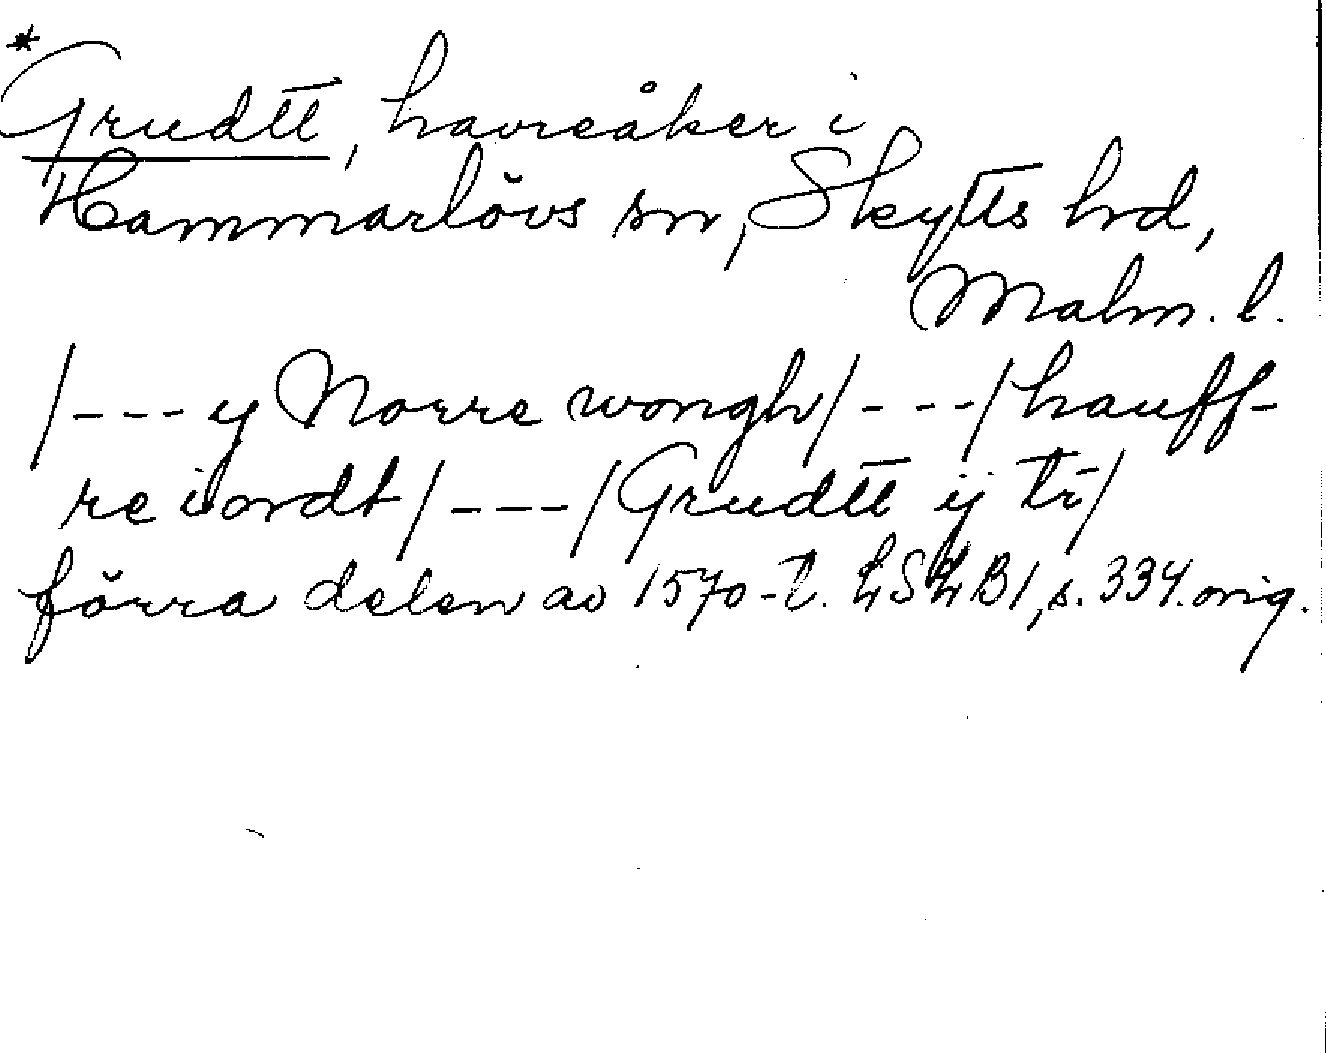 *Grudtt, havreåker i
Hammarlövs sn, Skytts hd,
Malm. l.
/--- y Norre wongh/---/hauff-
re iordt/---/Grudtt ij tr/
förra delen av 1570-t. LSLB1, s. 334. orig.